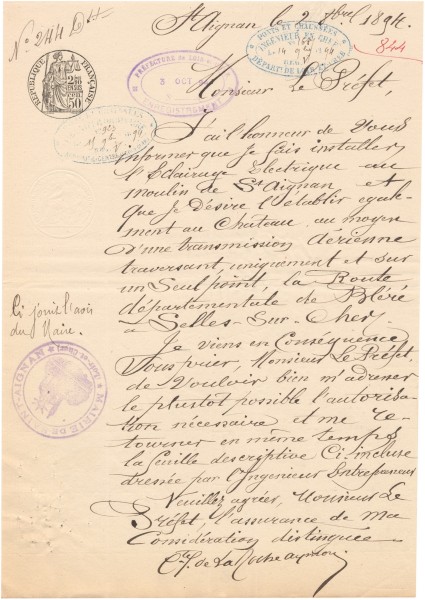 N° 244 Dt
St Aignan le 2 8bre 1894.
844
PONTS ET CHAUSSÉES
INGÉNIEUR EN CHEF
DÉPARTt DE LOIR-ET-CHER
PRÉFECTURE DE LOIR
3 OCT
ENREGISTREMENT
RÉPUBLIQUE FRANÇAISE
50
Monsieur Le Préfet,
J'ai l'honneur de Vous
informer que je fais installer
l'Eclairage Electrique au
moulin de St Aignan et
que je Désire l'établir égale-
ment au Château, au moyen
d'une transmission aérienne
traversant, uniquement et sur
un Seul point, la Route
départementale de Bléré
à Selles-Sur-Cher.
Ci joint l'avis
du Maire.
MAIRIE DE SAINT-AIGNAN
Je viens en Conséquence
Vous prier, Monsieur Le Préfet
de Vouloir bien m'adresser
le plustot possible l'autorisa-
tion nécessaire et me re-
tourner en même temps
la feuille descriptive Ci-incluse
dressée par l'Ingenieur Entrepreneur
Veuillez agréer, Monsieur Le
Préfet, l'assurance de ma
Considération distinguée
Cte G. de La Roche aymon